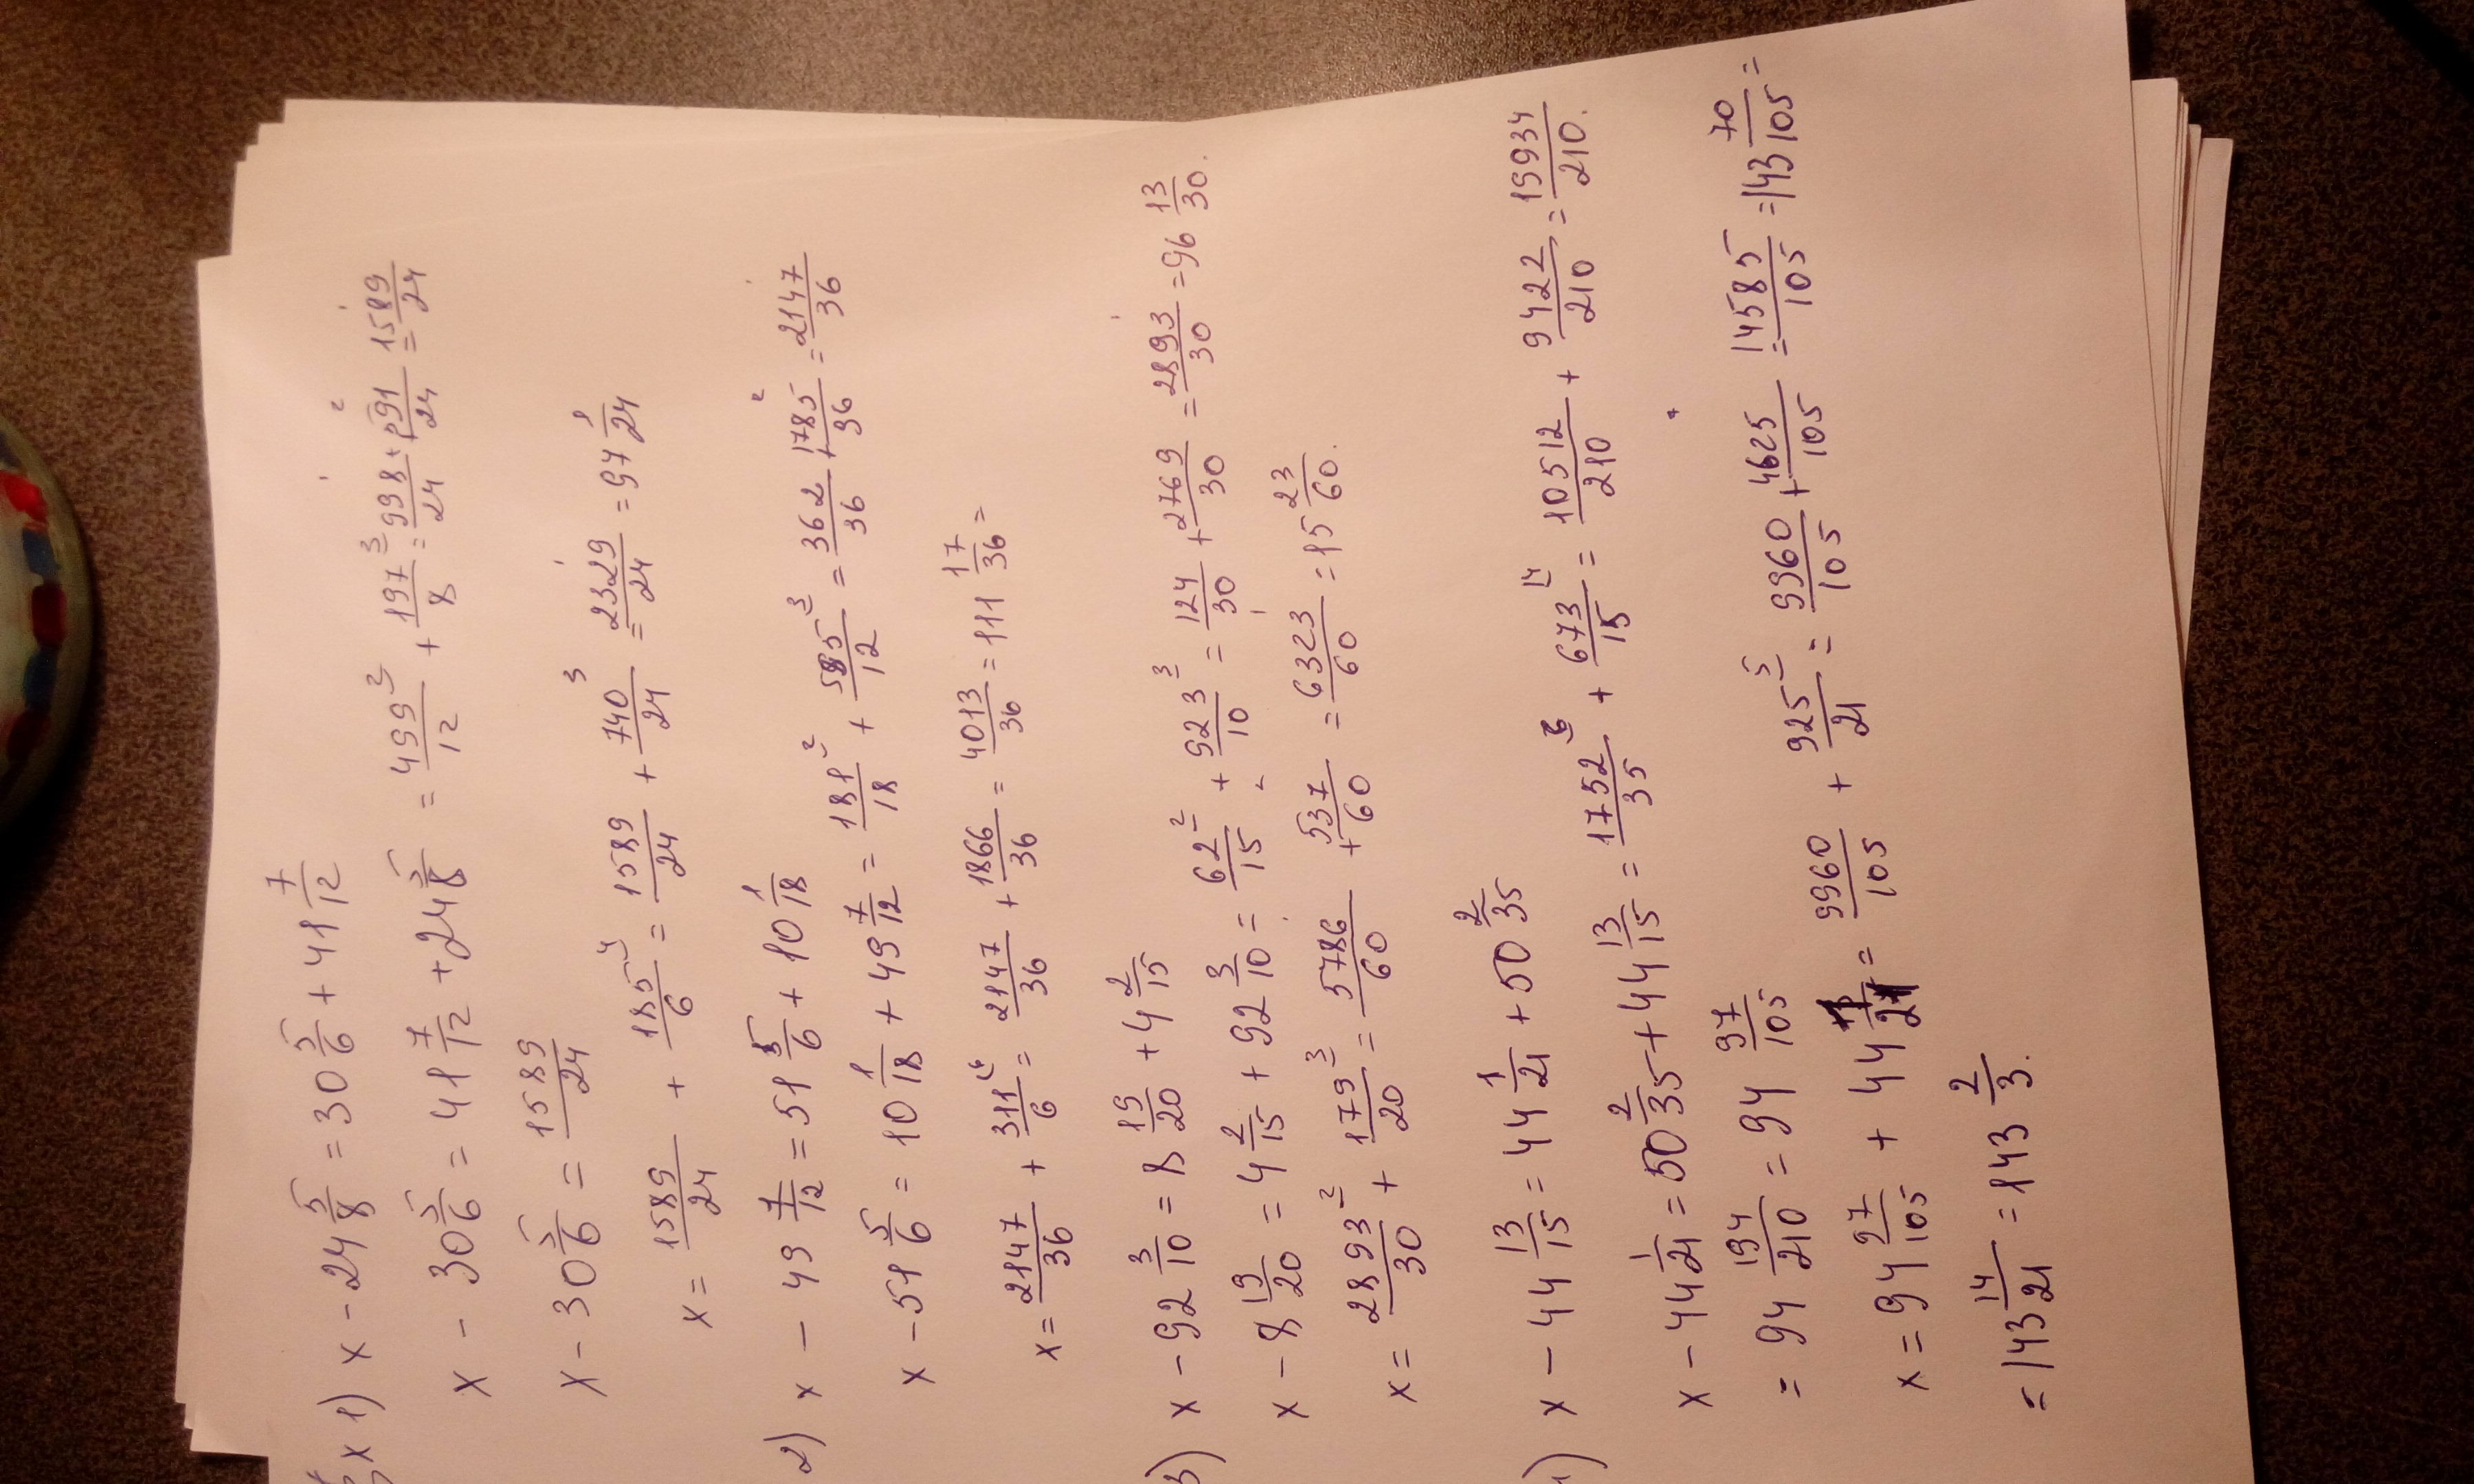 x 1) x - 24 5/8 = 30 5/6 + 41 7/12
x - 30 5/6 = 41 7/12 + 24 5/8 = 499/12 ² + 197/8 ³ = 998/24 + 591/24 = 1589/24
x - 30 5/6 = 1589/24
x = 1589/24 + 185/6 ⁴ = 1589/24 + 740/24 = 2329/24 = 97 1/24
2) x - 49 7/12 = 51 5/6 + 10 1/18
x - 51 5/6 = 10 1/18 + 49 7/12 = 181/18 ² + 595/12 ³ = 362/36 + 1785/36 = 2147/36
x = 2147/36 + 311/6 ⁶ = 2147/36 + 1866/36 = 4013/36 = 111 17/36 =
3) x - 92 3/10 = 8 19/20 + 4 2/15
x - 8 19/20 = 4 2/15 + 92 3/10 = 62/15 ² + 923/10 ³ = 124/30 + 2769/30 = 2893/30 = 96 13/30.
x = 2893/30 ² + 179/20 ³ = 5786/60 + 537/60 = 6323/60 = 15 23/60.
) x - 44 13/15 = 44 1/21 + 50 2/35
x - 44 1/21 = 50 2/35 + 44 13/15 = 1752/35 ⁶ + 673/15 ¹⁴ = 10512/210 + 9422/210 = 19934/210.
= 94 194/210 = 94 97/105
x = 94 97/105 + 44 1/21 = 9960/105 + 925/21 ⁵ = 9960/105 + 4625/105 = 14585/105 = 143 70/105 =
= 143 14/21 = 143 2/3.